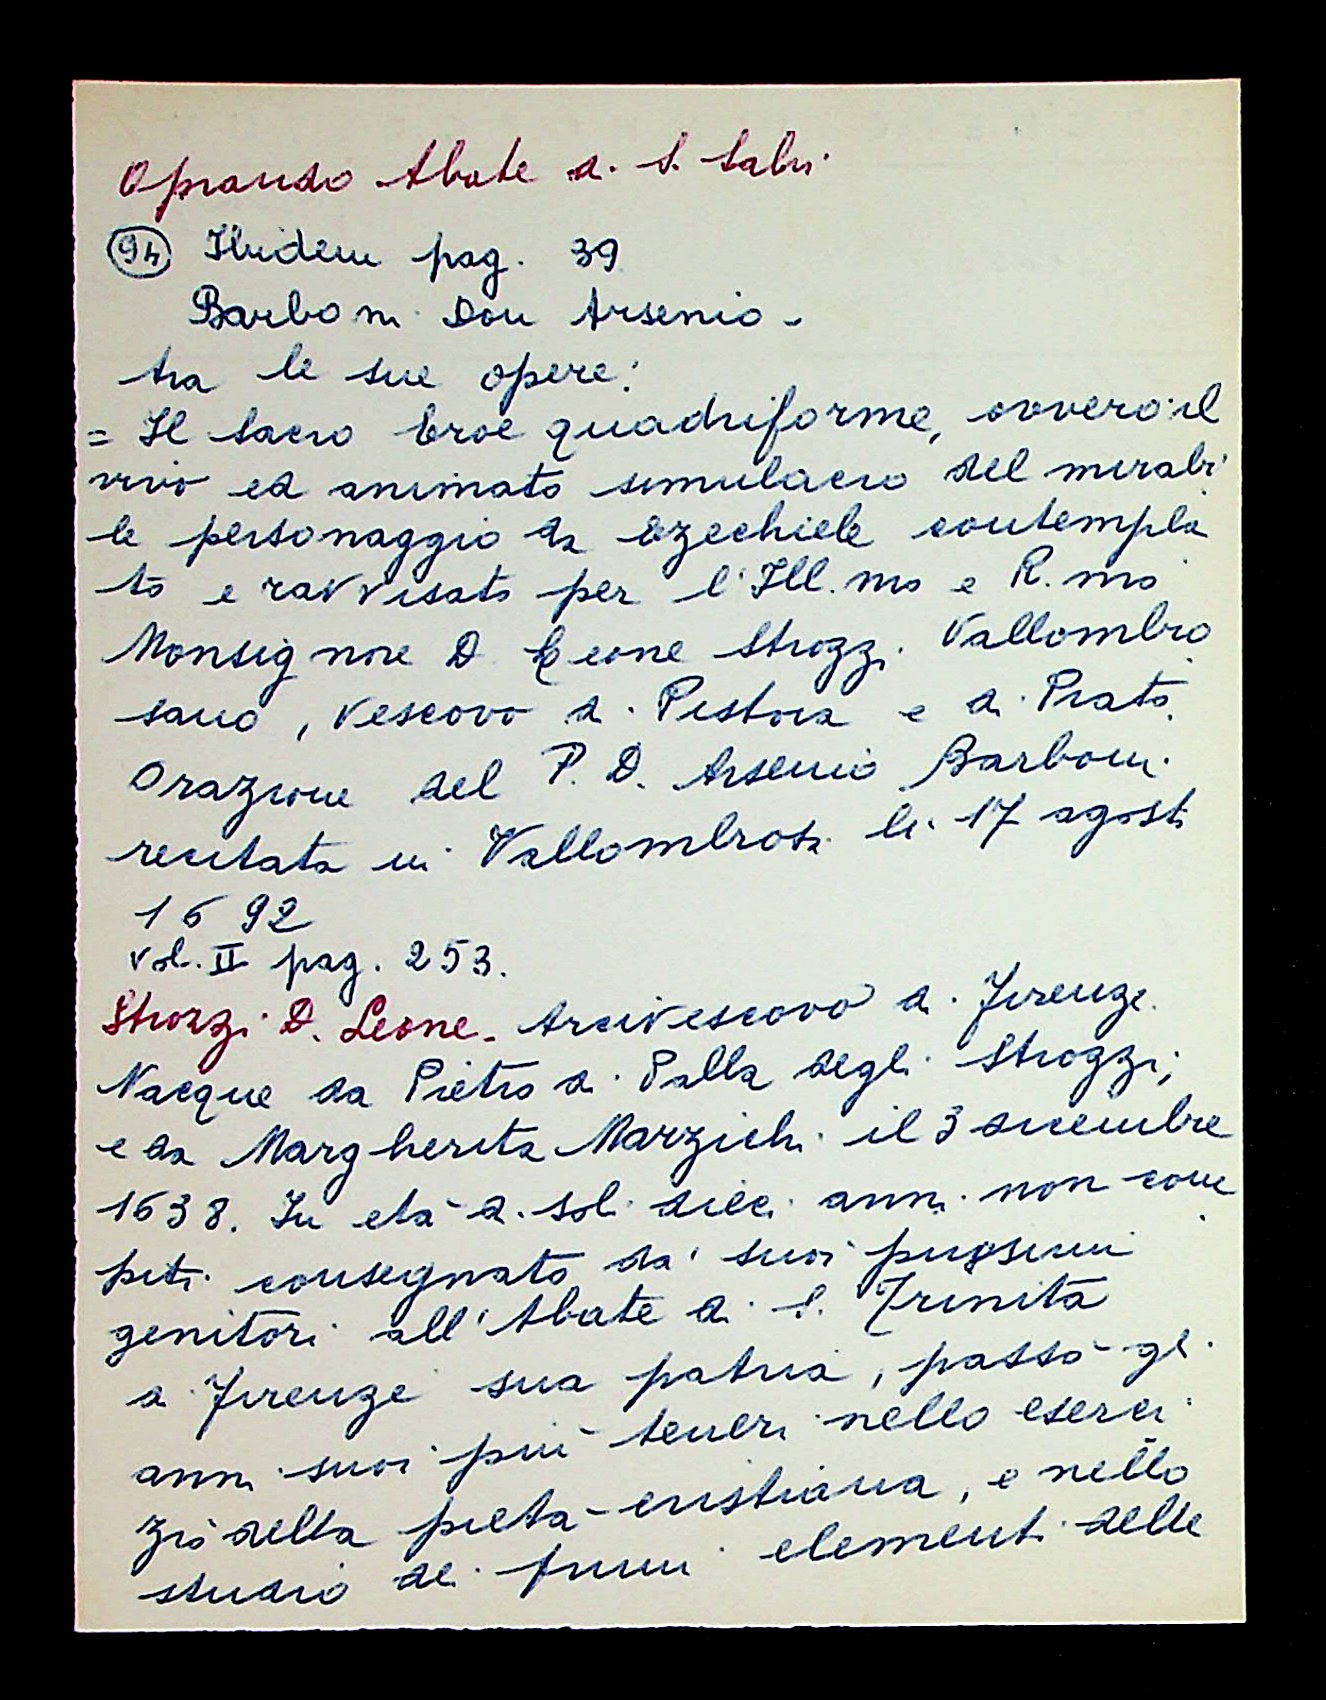 Oprando Abate di S. Salvi
94 Ibidem pag. 39
Barboni Don Arsenio -
tra le sue opere:
= Il Sacro Eroe quadriforme, ovvero il
vivo ed animato simulacro del mirabi
le personaggio da Ezechiele contempla
to e ravvisato per l'Ill.mo e R.mo
Monsignore D. Leone Strozzi Vallombro
sano, Vescovo di Pistoia e di Prato.
Orazione del P. D. Arsenio Barboni
recitata in Vallombrosa li 17 agosto
1692
vol. II pag. 253.
Strozzi D. Leone - Arcivescovo di Firenze.
Nacque da Pietro di Palla degli Strozzi,
e da Margherita Marzichi il 3 dicembre
1638. In età di soli dieci anni non com
piti consegnato da' suoi piissimi
genitori all'Abate di S. Trinita
di Firenze sua patria, passò gli
anni suoi più teneri nello eserci
zio della pietà cristiana, e nello
studio dei primi elementi delle